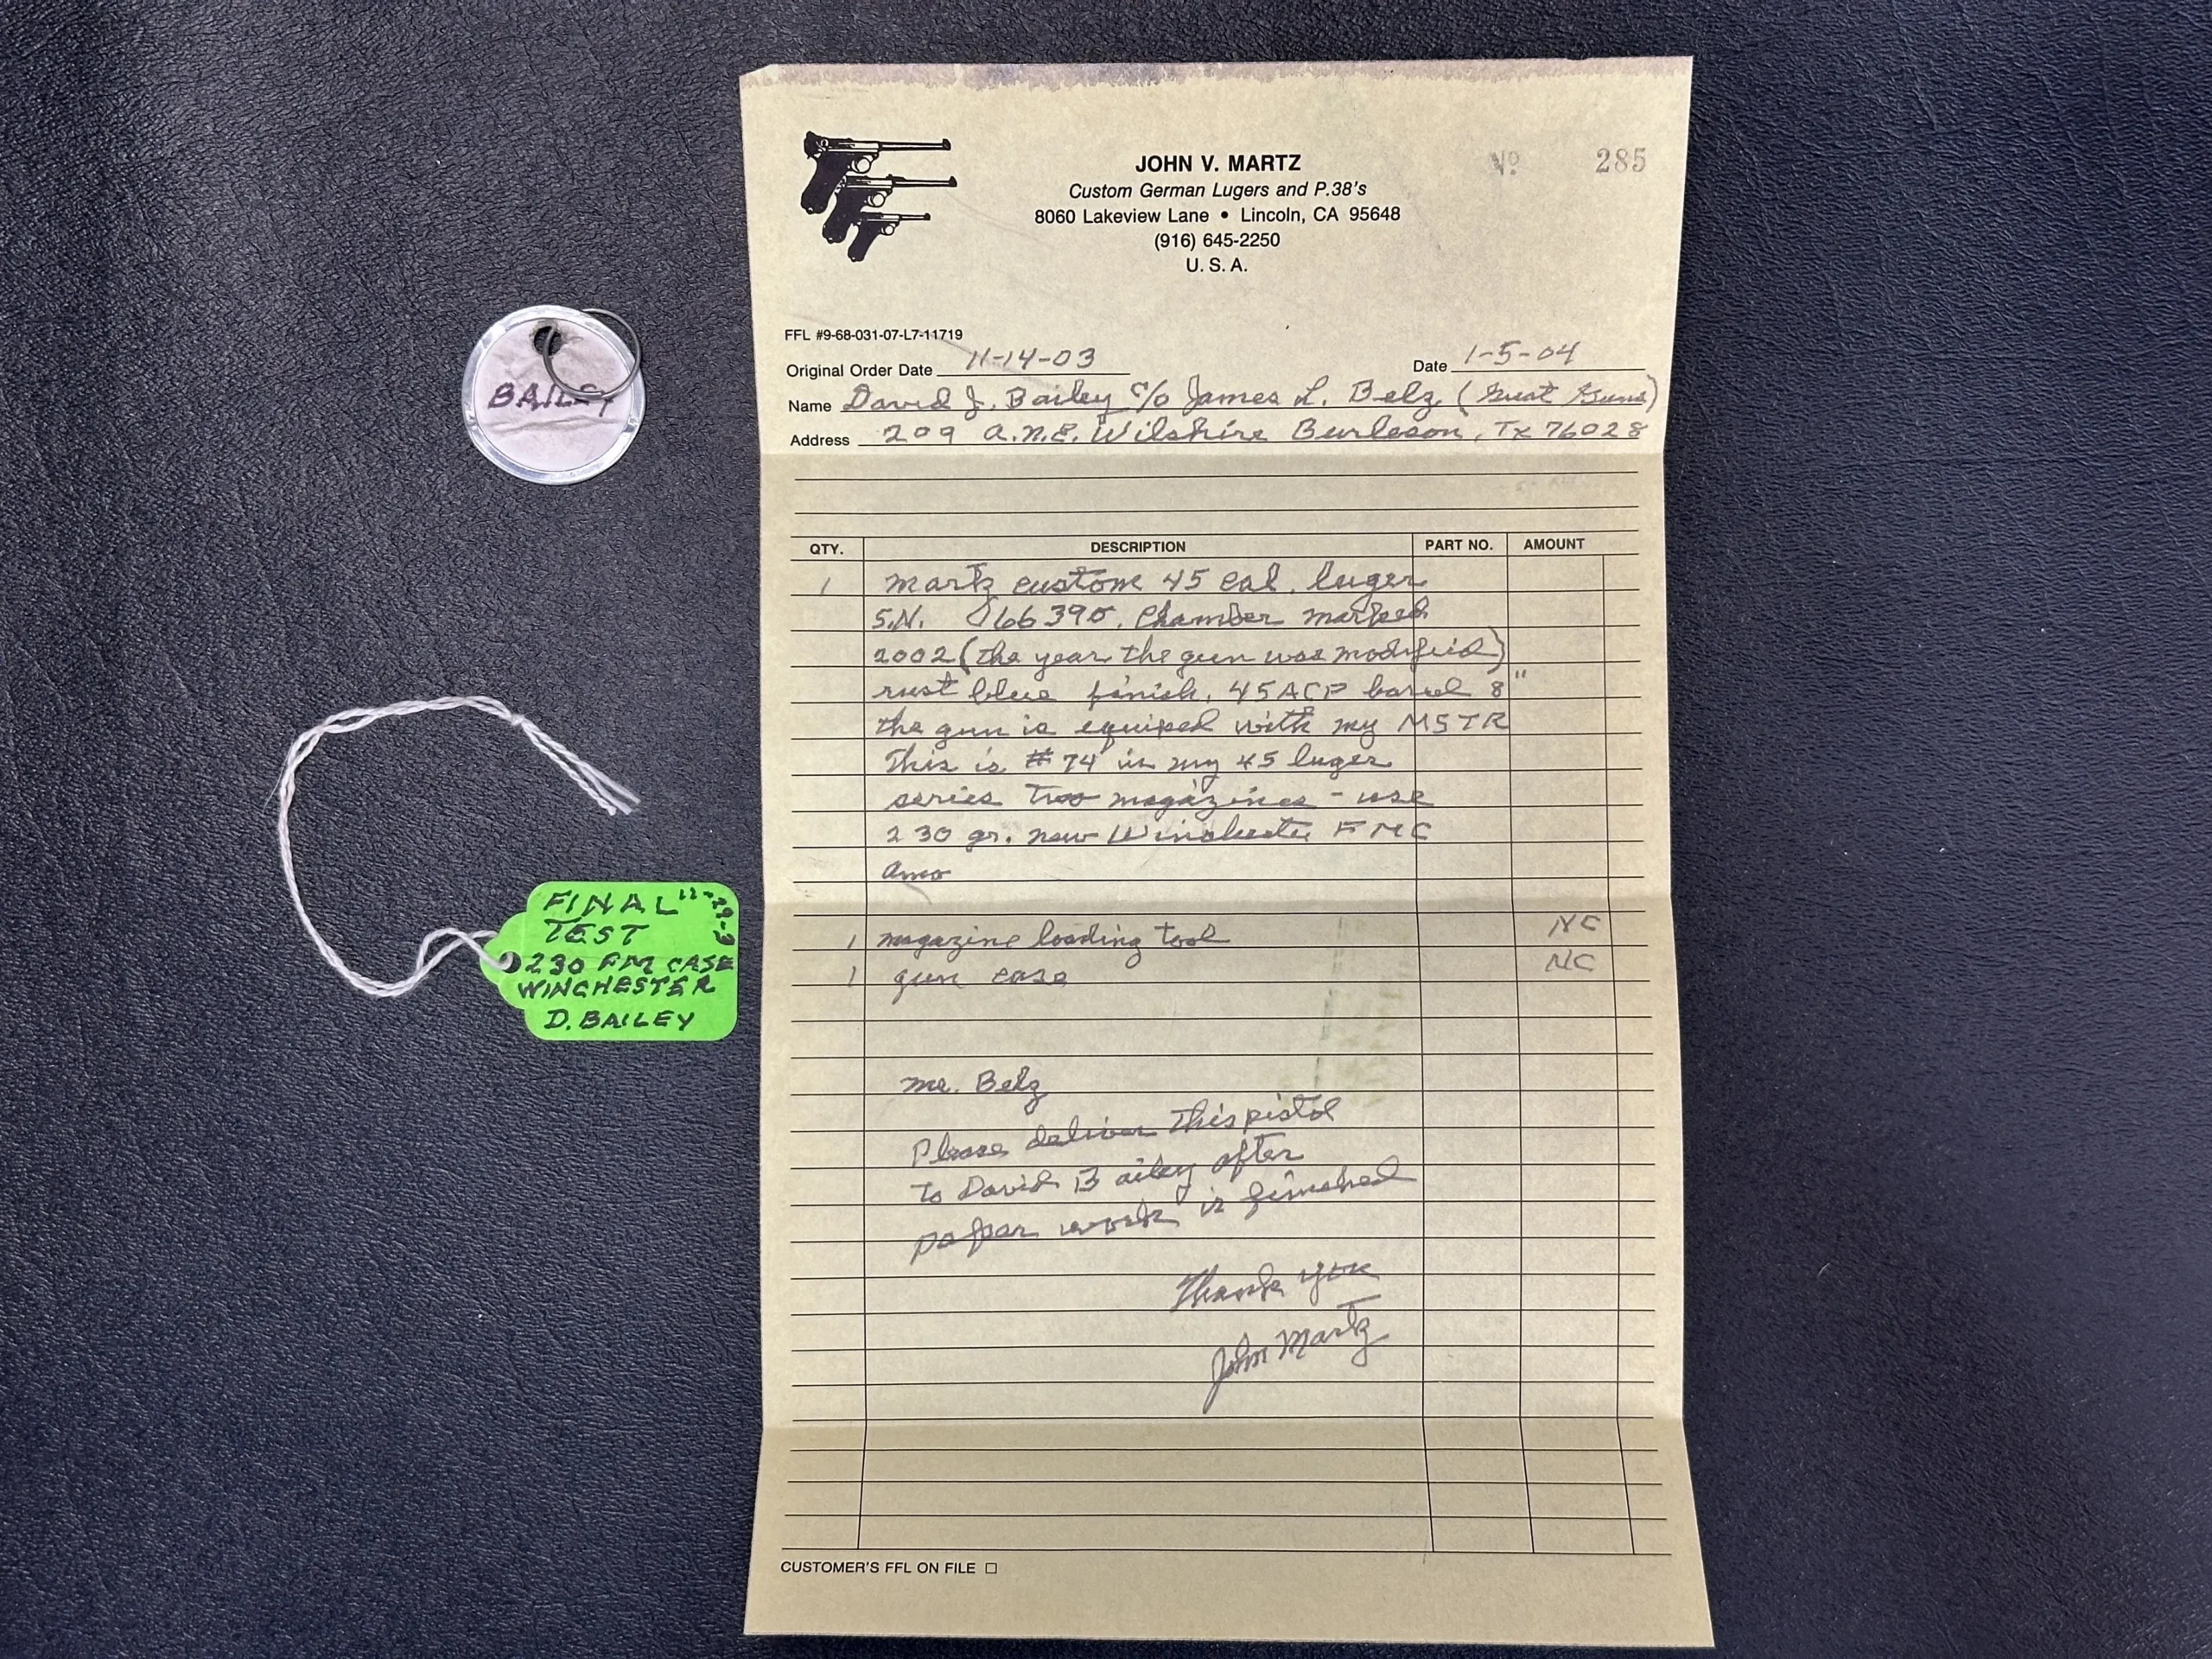 JOHN V. MARTZ
Custom German Lugers and P.38's
8060 Lakeview Lane • Lincoln, CA 95648
(916) 645-2250
U. S. A.
Nº 285
FFL #9-68-031-07-L7-11719
Original Order Date 11-14-03 Date 1-5-04
Name David J. Bailey c/o James L. Belz (Great Guns)
Address 209 A.N.E. Wilshire Burleson, TX 76028
QTY. DESCRIPTION PART NO. AMOUNT
1 Martz custom 45 cal. luger
S.N. 66390. Chamber marked
2002 (the year the gun was modified)
rust blue finish. 45ACP barrel 8"
the gun is equiped with my MSTR
This is #74 in my 45 luger
series Two magazines - use
230 gr. new Winchester FMC
Amo
1 magazine loading tool NC
1 gun case NC
Mr. Belz
Please deliver this pistol
to David Bailey after
paper work is finished
Thank you
John Martz
CUSTOMER'S FFL ON FILE □
BAILEY
FINAL
TEST
230 FM CASE
WINCHESTER
D. BAILEY